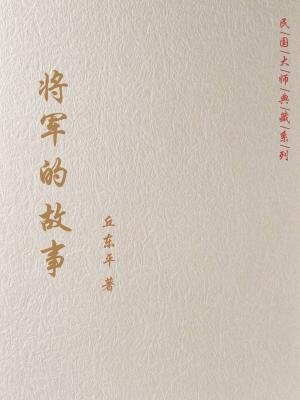 民国大师典藏系列
将军的故事
丘东平著